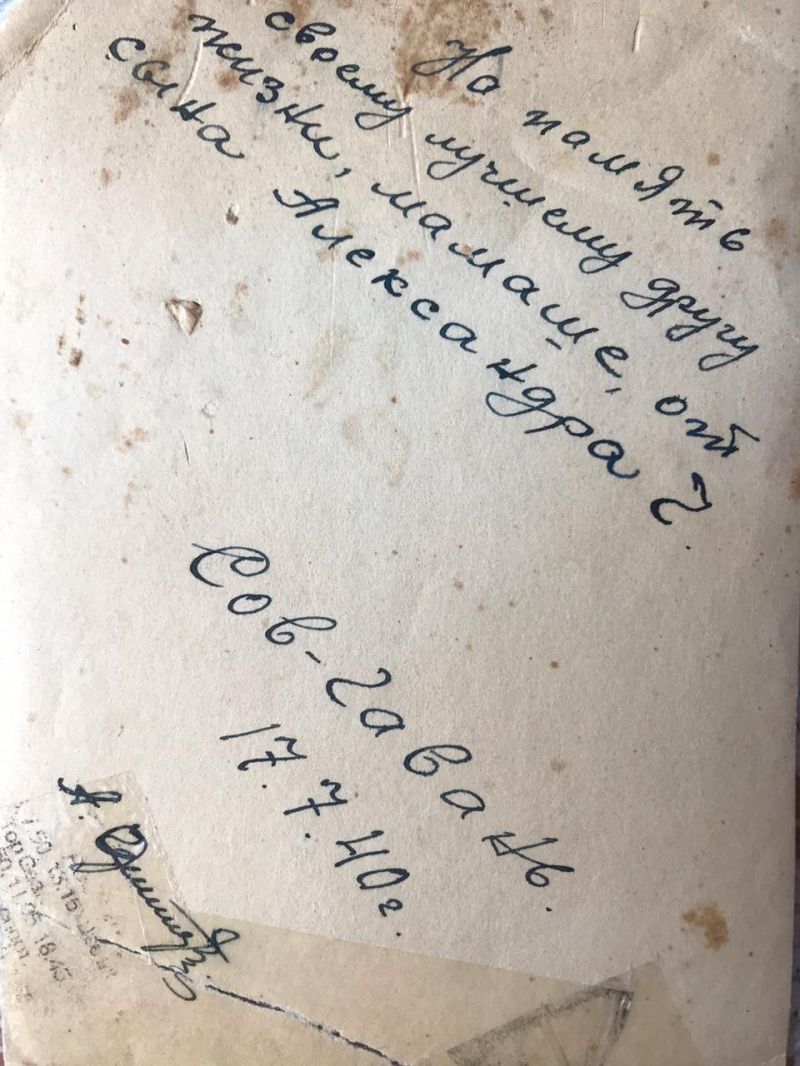 На память
своему лучшему другу
жизни, мамаше, от
сына Александра Г.
Сов-Гавань.
17.7.40г.
А.